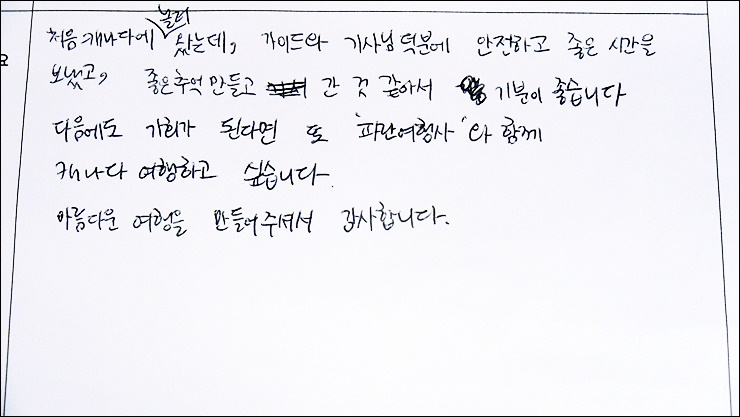 처음 캐나다에 놀러 왔는데, 가이드와 기사님 덕분에 안전하고 좋은 시간을
보냈고, 좋은추억 만들고 간 것 같아서 기분이 좋습니다
다음에도 기회가 된다면 또 '파란여행사' 와 함께
캐나다 여행하고 싶습니다.
아름다운 여행을 만들어주셔서 감사합니다.